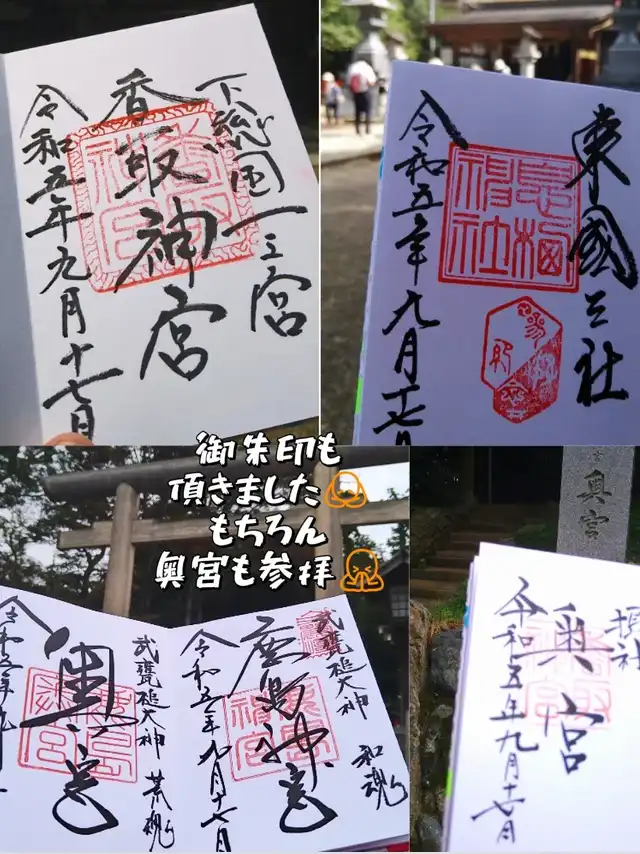 下総国一之宮
香取神宮
令和五年九月十七日
東國三社
息栖神社
令和五年九月十七日
御朱印も
頂きました
もちろん
奥宮も参拝
武甕槌大神 和魂
鹿島神宮
令和五年九月十七日
武甕槌大神 荒魂
奥宮
令和五年九
奥宮
奥宮
令和五年九月十七日